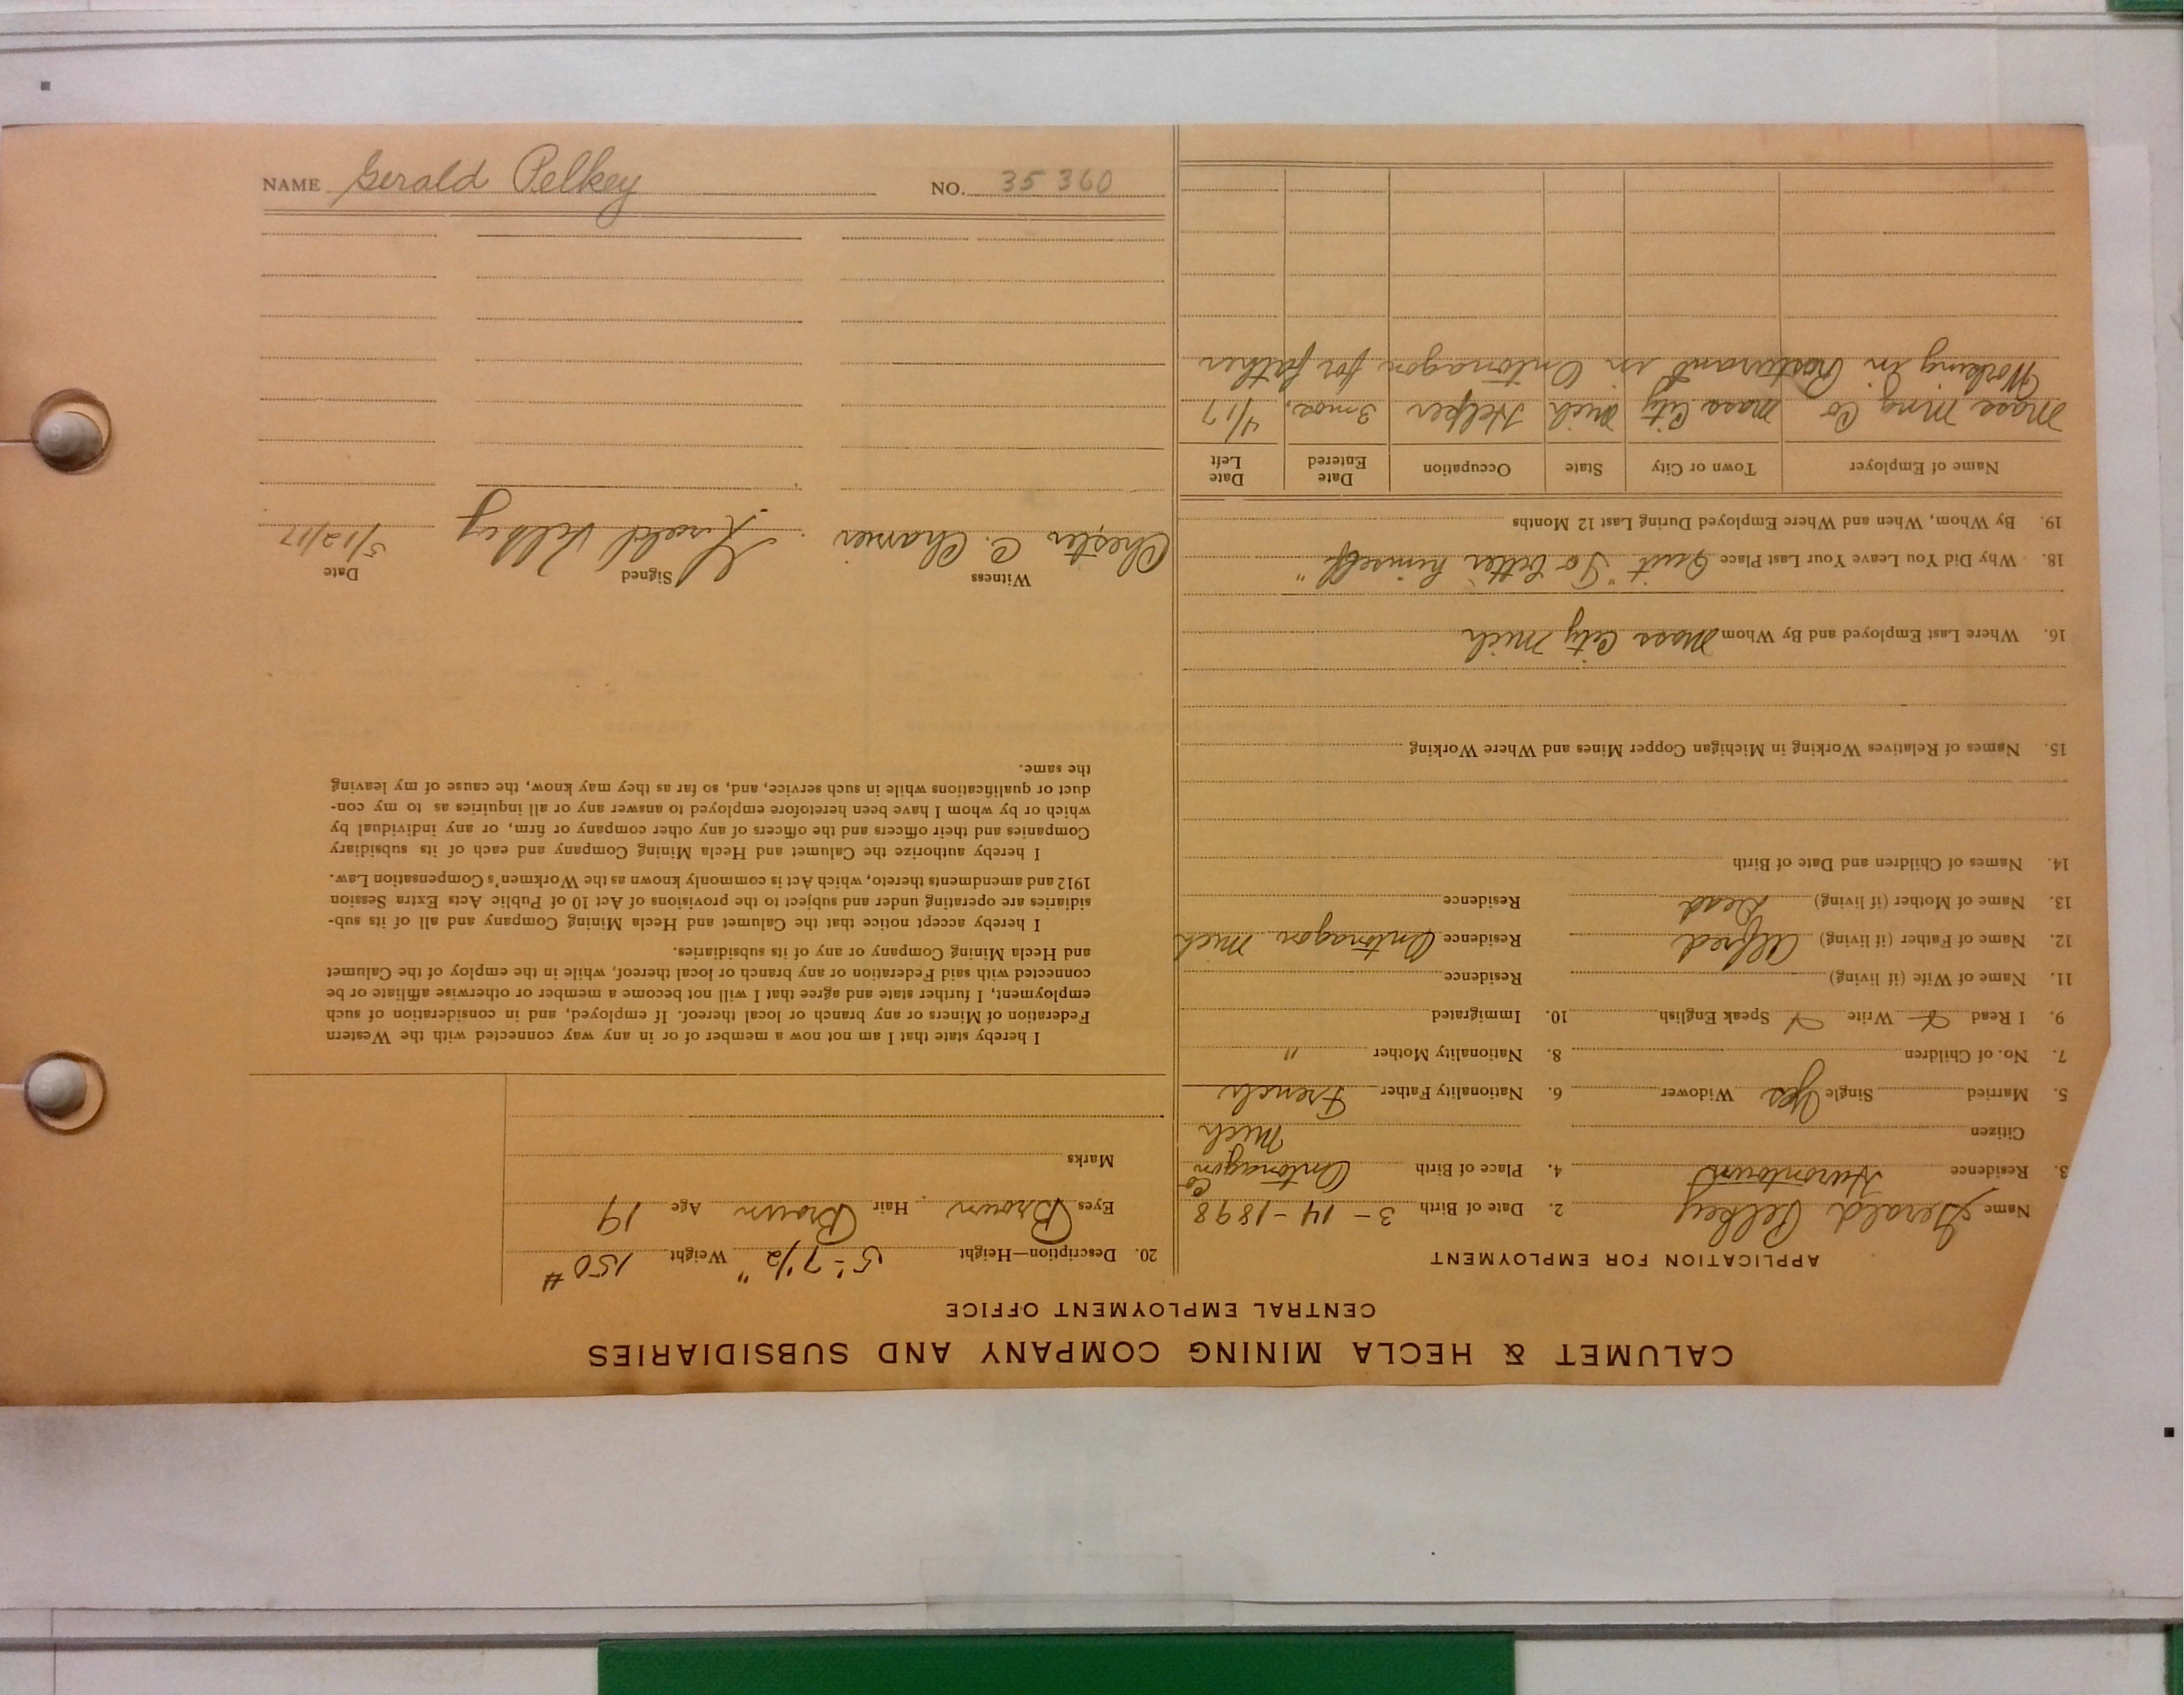 NAME Gerald Pelkey NO. 35 360
CALUMET & HECLA MINING COMPANY AND SUBSIDIARIES
CENTRAL EMPLOYMENT OFFICE
APPLICATION FOR EMPLOYMENT
Name Gerald Pelkey 2. Date of Birth 3-14-1898
3. Residence Hurontown 4. Place of Birth Ontonagon Co
Citizen Mich
5. Married Single Yes Widower 6. Nationality Father French
7. No. of Children 8. Nationality Mother "
9. I Read Write Speak English 10. Immigrated
11. Name of Wife (if living) Residence
12. Name of Father (if living) Alfred Residence Ontonagon Mich
13. Name of Mother (if living) Dead Residence
14. Names of Children and Date of Birth
15. Names of Relatives Working in Michigan Copper Mines and Where Working
16. Where Last Employed and By Whom Mass City Mich
18. Why Did You Leave Your Last Place Quit "To better himself"
19. By Whom, When and Where Employed During Last 12 Months
Name of Employer Town or City State Occupation Date Entered Date Left
Mass Ming Co Mass City Mich Helper 3 mos. 4/17
Working in Resturant in Ontonagon for father
20. Description—Height 5'-7 1/2" Weight 150 #
Eyes Brown Hair Brown Age 19
Marks
I hereby state that I am not now a member of or in any way connected with the Western
Federation of Miners or any branch or local thereof. If employed, and in consideration of such
employment, I further state and agree that I will not become a member or otherwise affiliate or be
connected with said Federation or any branch or local thereof, while in the employ of the Calumet
and Hecla Mining Company or any of its subsidiaries.
I hereby accept notice that the Calumet and Hecla Mining Company and all of its sub-
sidiaries are operating under and subject to the provisions of Act 10 of Public Acts Extra Session
1912 and amendments thereto, which Act is commonly known as the Workmen's Compensation Law.
I hereby authorize the Calumet and Hecla Mining Company and each of its subsidiary
Companies and their officers and the officers of any other company or firm, or any individual by
which or by whom I have been heretofore employed to answer any or all inquiries as to my con-
duct or qualifications while in such service, and, so far as they may know, the cause of my leaving
the same.
Witness Signed Date
Chester C. Charier Gerald Pelkey 5/12/17